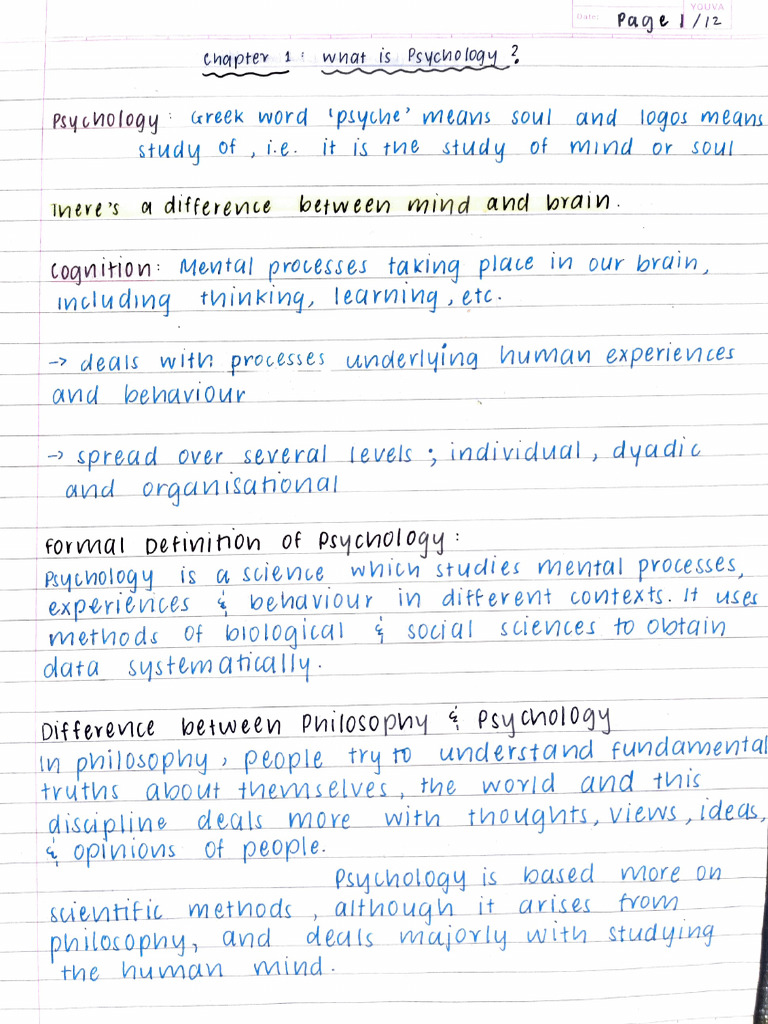 YOUVA
Date: Page 1/12
Chapter 1: What is Psychology?
Psychology: Greek word 'psyche' means soul and logos means
study of, i.e. it is the study of mind or soul
There's a difference between mind and brain.
Cognition: Mental processes taking place in our brain,
including thinking, learning, etc.
-> deals with processes underlying human experiences
and behaviour
-> spread over several levels; individual, dyadic
and organisational
Formal Definition of Psychology:
Psychology is a science which studies mental processes,
experiences & behaviour in different contexts. It uses
methods of biological & social sciences to obtain
data systematically.
Difference between Philosophy & Psychology
In philosophy, people try to understand fundamental
truths about themselves, the world and this
discipline deals more with thoughts, views, ideas,
& opinions of people.
Psychology is based more on
scientific methods, although it arises from
philosophy, and deals majorly with studying
the human mind.